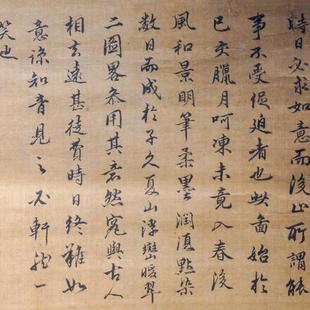 時日必求如意而後止所謂能
事不受促迫者也此畵始於
己亥臘月呵凍未竟入春後
風和景明筆柔墨潤復點染
数日而成於子久夏山浮巒暖翠
二圖畧叅用其意然寃與古人
相去遠甚徒費時日終難如
意諒知音見之不軒然一
笑也